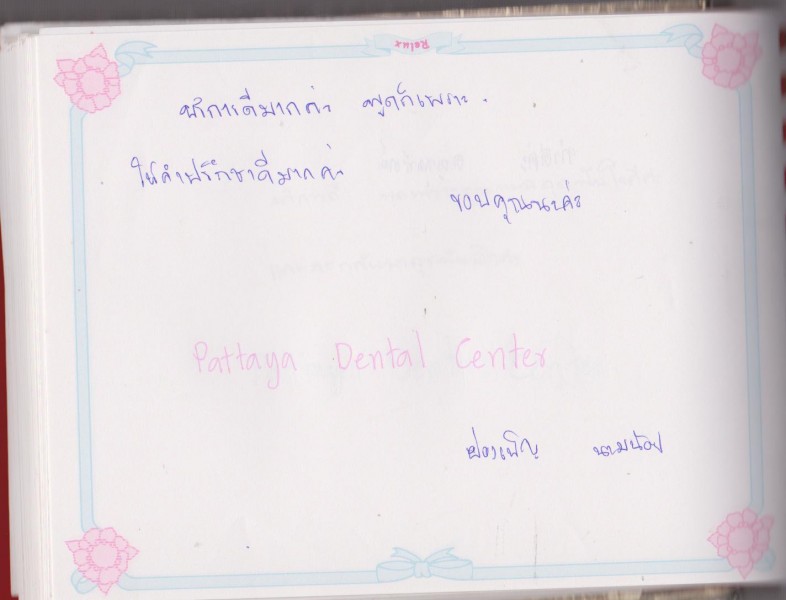 Relux
บริการดีมากค่ะ พูดก็เพราะ.
ให้คำปรึกษาดีมากค่ะ
ขอบคุณนะค่ะ
Pattaya Dental Center
นามน้อย